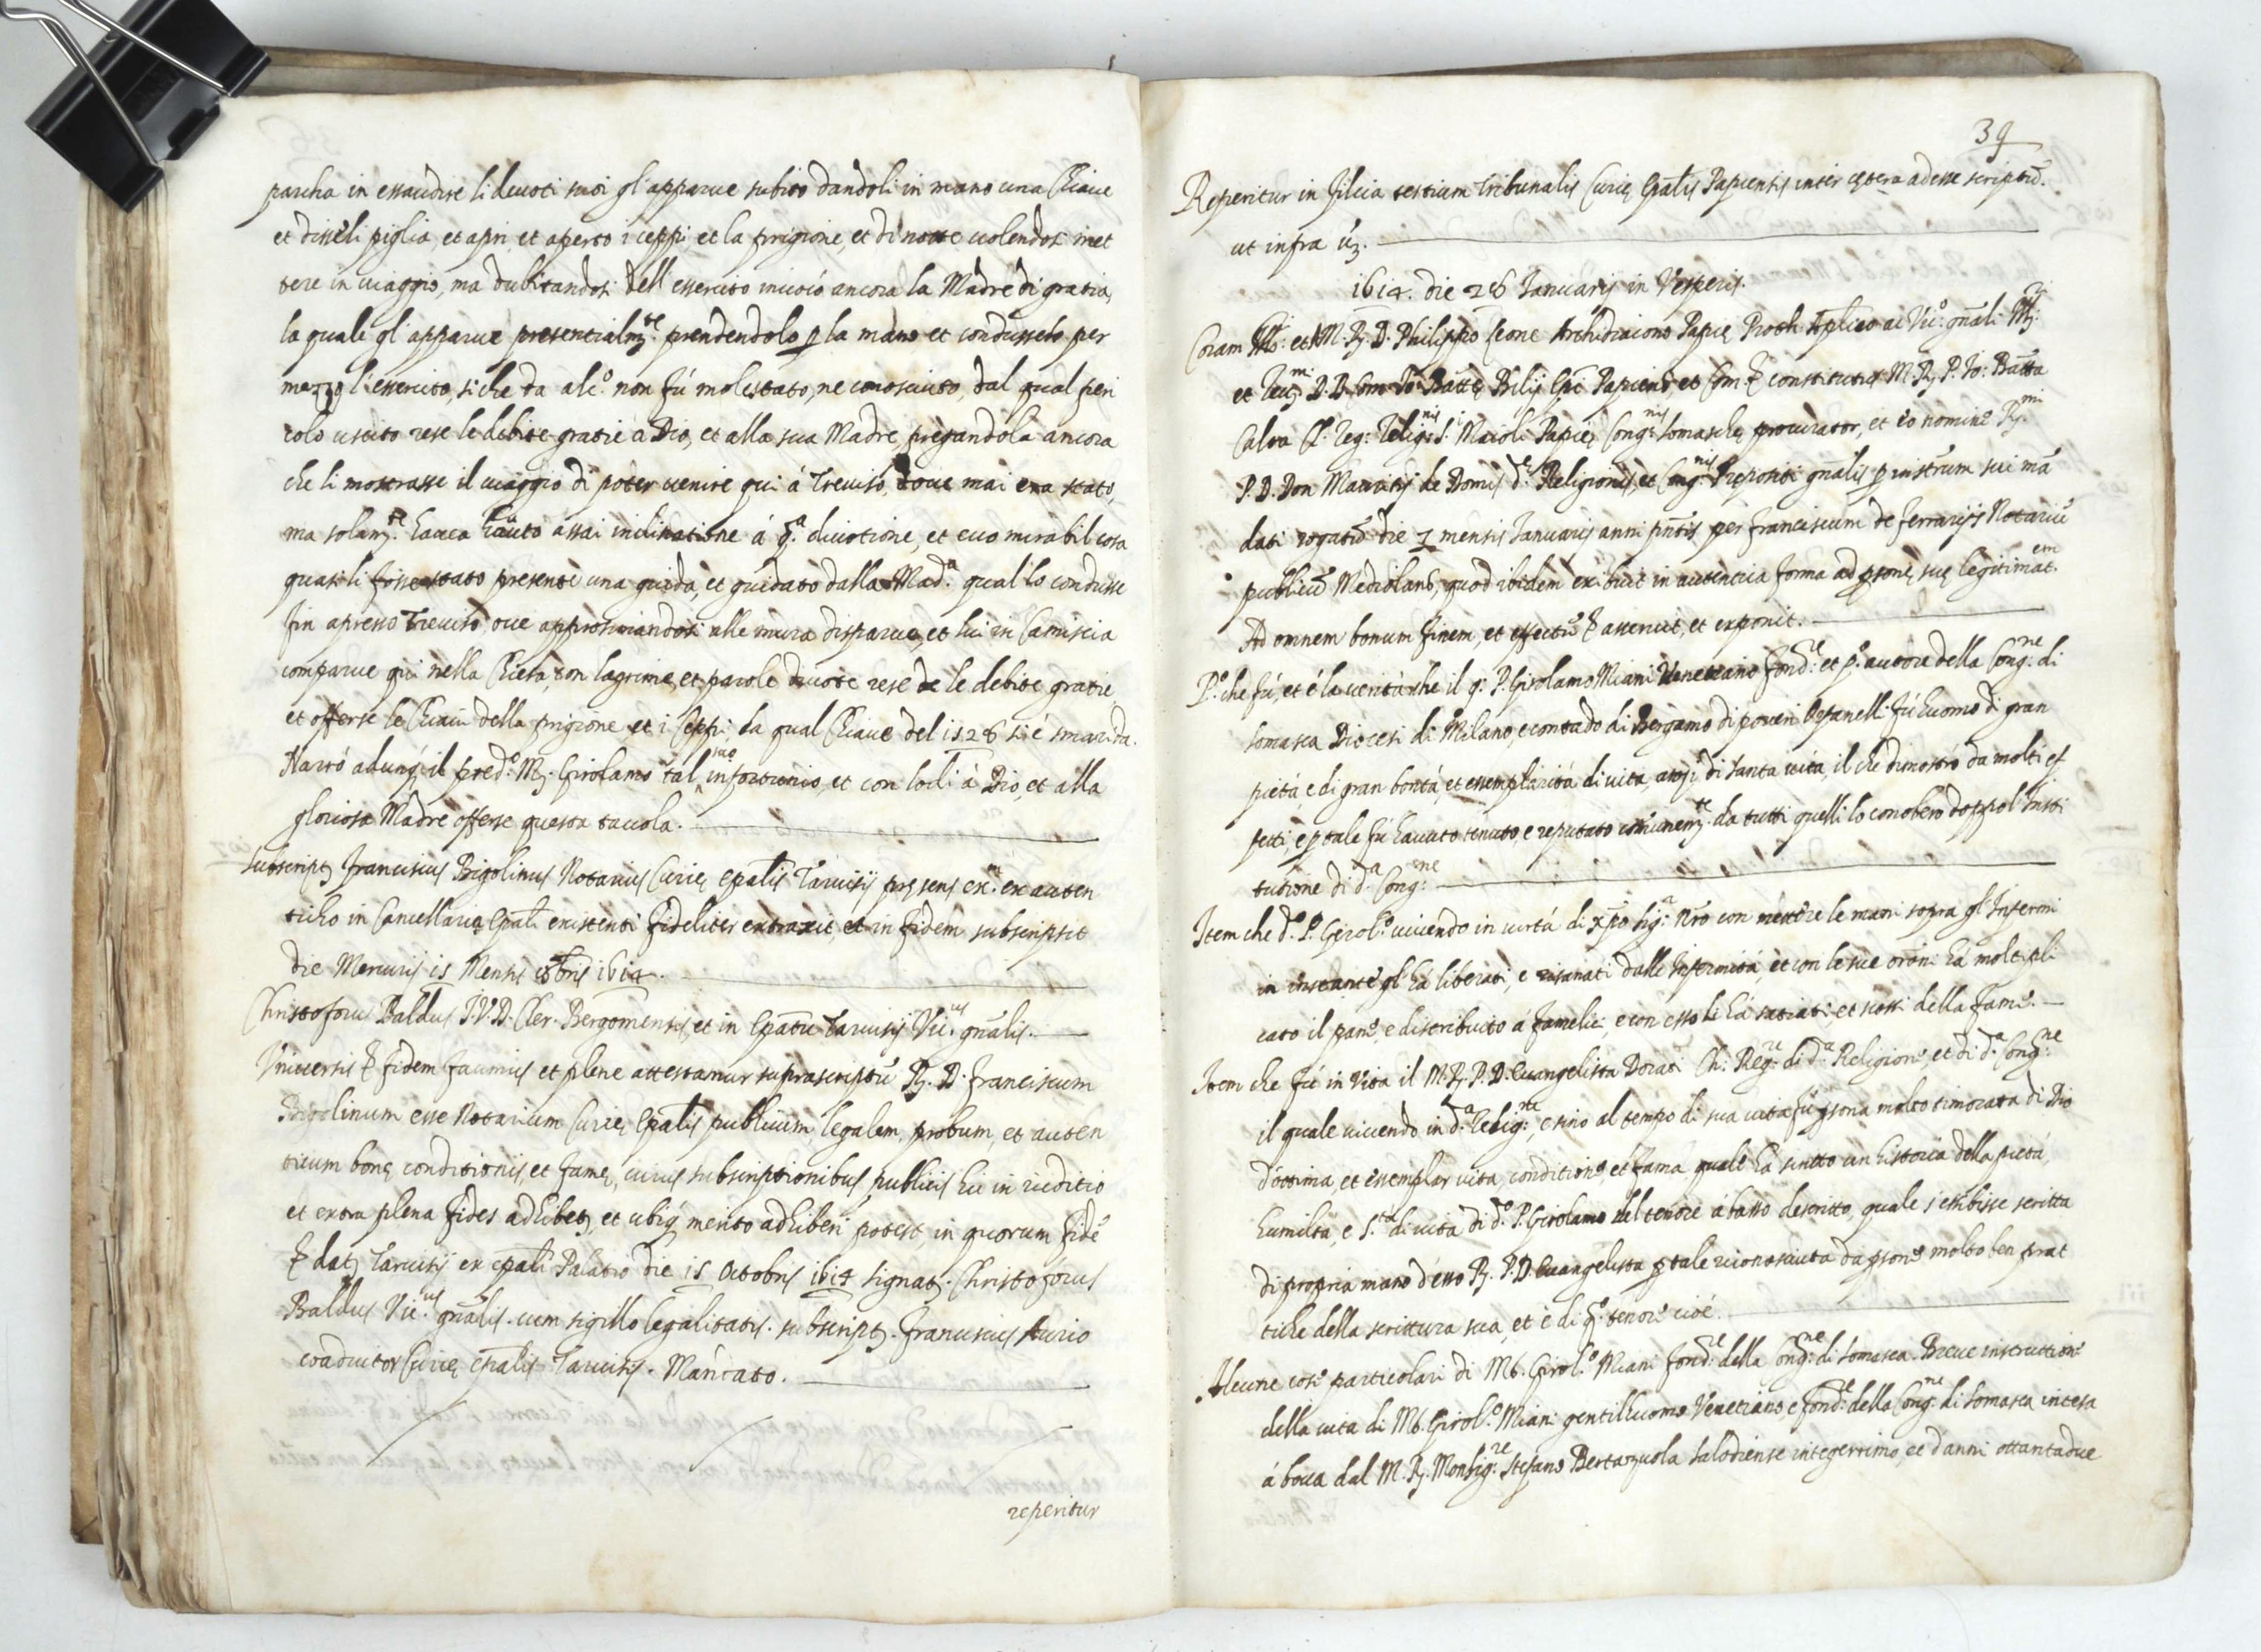 parcha in essaudire li devoti suoi gl'apparue subito dandoli in mano una Chiaue
et disseli piglia, et apri, et aperto i ceppi, et la prigione, et di notte uolendosi met
tere in uiaggio, ma dubitandosi dell'essercito inuocò ancora la Madre di gratia,
la quale gl'apparue presentialmte. prendendolo p la mano et condusselo per
mezzo l'essercito, siche da alco. non fù molestato, ne conosciuto, dal qual peri
colo uscito rese le debite gratie à Dio, et alla sua Madre, pregandola ancora
che li mostrasse il uiaggio di poter uenire qui à Treuiso, doue mai era stato,
ma solamte. hauea hauuto assai inclinatione á qa. diuotione, et ecco mirabil cosa
quasi li fosse stato presente una guida, et guidato dalla Mada. qual lo condusse
fin apresso Treuiso, oue approssimandosi alle mura disparue, et lui in Camiscia
comparue qui nella Chiesa, con lagrime, et parole diuote rese de le debite gratie,
et offerse le Chiaui della prigione et i Ceppi, la qual Chiaue del 1528 si è smarida.
Narrò adunq il predo. Mr. Girolamo tal suo infortunio, et con lodi à Dio, et alla
gloriosa Madre offerse questa tauola.
subscript Franciscus Bigolinus Notarius Curię Epalis Taruisij pręsens exm. ex auten
tico in Cancellaria Epali existenti fideliter extraxit, et in fidem subscripsit
die Mercurij 15 Mensis 8bris 1614.
Christoforus Baldus J.V.D. Cler. Bergomensis, et in Epatu Taruisij Vicus. gnalis.
Vniuersis & fidem facimus et plene attestamur suprascriptū R. D. Franciscum
Bigolinum esse Notarium Curię Epalis publicum, legalem, probum, et auten
ticum bonę conditionis, et famę, cuius subscriptionibus publicis hic in iuditio
et extra plena fides adhibet, et ubiq merito adhiberi potest, in quorum fidē
& dat Taruisij ex epali Palatio die 15 Octobris 1614 signat. Christoforus
Baldus Vicus. gnalis. cum sigillo legalitatis. subscript. Franciscus Aurio
coadiutor Curię epalis Taruisij. Mancato.
reperitur
39
Reperitur in Filcia testium Tribunalis Curię Epalis Papiensis inter cętera adesse scriptū.
ut infra uz.
1614. die 28 Januarij in Vesperis.
Coram Ill. et M. R. D. Philippo Leone Archidiacono Papię Proth. Aplico ac Vico. gnali Ill.
et Reumi. D. D. Com. Jo: Battę Bilij Epi Papiens, et Com. & constitutus M. R. P. Jo: Batta
Calva Cl. Reg. Relignis. S. Maioli Papię Congnis. Somaschę procurator, et eo nomine Rmi.
P. D. Don Mauritij de Domis de. Religionis, et Congnis. Prepositi gnalis p instrum sui mā
dati rogatū die 7 mensis Januarij anni pntis per Franciscum de Ferrarijs Notariū
publicū Mediolani, quod ibidem exibuit in autentica forma ad psonę suę legitimatem.
Ad omnem bonum finem, et effectū & asseruit, et exponit.
Po. che fù, et é la uerità che il q. P. Girolamo Miani Venetiano fondre. et po. autore della Congne. di
somasca Diocesi di Milano, e contado di Bergamo di poueri Orfanelli fù huomo di gran
pietà, e di gran bontà, et essemplarità di uita, anzi di santa uita, il che dimostrò da molti ef
fetti, e p tale fù hauuto tenuto, e reputato comunemte. da tutti quelli lo conobero doppo l'Insti
tutione di da. Congne.
Item che do. P. Girolo. uiuendo in uirtù di Xpo Siga. Nro con mettere le mani sopra gl'Infermi
in instante gl'hà liberati, e risanati dalli Infermità, et con le sue oroni hà moltipli
cato il pane, e distribuito á famelici, e con esso li hà satiati, et tolti della fame.
Item che fù in Vita il M. R. P. D. Euangelista Dorati Ch: Regre. di da. Religione, et di da. Congne.
il quale uiuendo in da. Religne., e sino al tempo di sua uita fù psona molto timorata di Dio
d'ottima, et essemplar uita, conditione, et fama, quale hà scritto un historia della pietà,
humiltà, e Sta. di uita di do. P. Girolamo del tenore à basso descritto, quale s'essibisse scritta
di propria mano d'esso R. P. D. Euangelista p tale riconosciuta da psone molto ben prat
tiche della scrittura sua, et è di qo. tenore cioé.
Alcune cose particolari di Mo. Girolo. Miani fondre. della Congne. di Somasca. Breue instructione
della uita di Mo. Girolo. Miani gentilhuomo Venetiano, e fondre. della Congne. di Somasca intesa
á bocca dal M. R. Monsigre. Stefano Bertazuola Salodiense integerrimo, et d'anni ottantadue